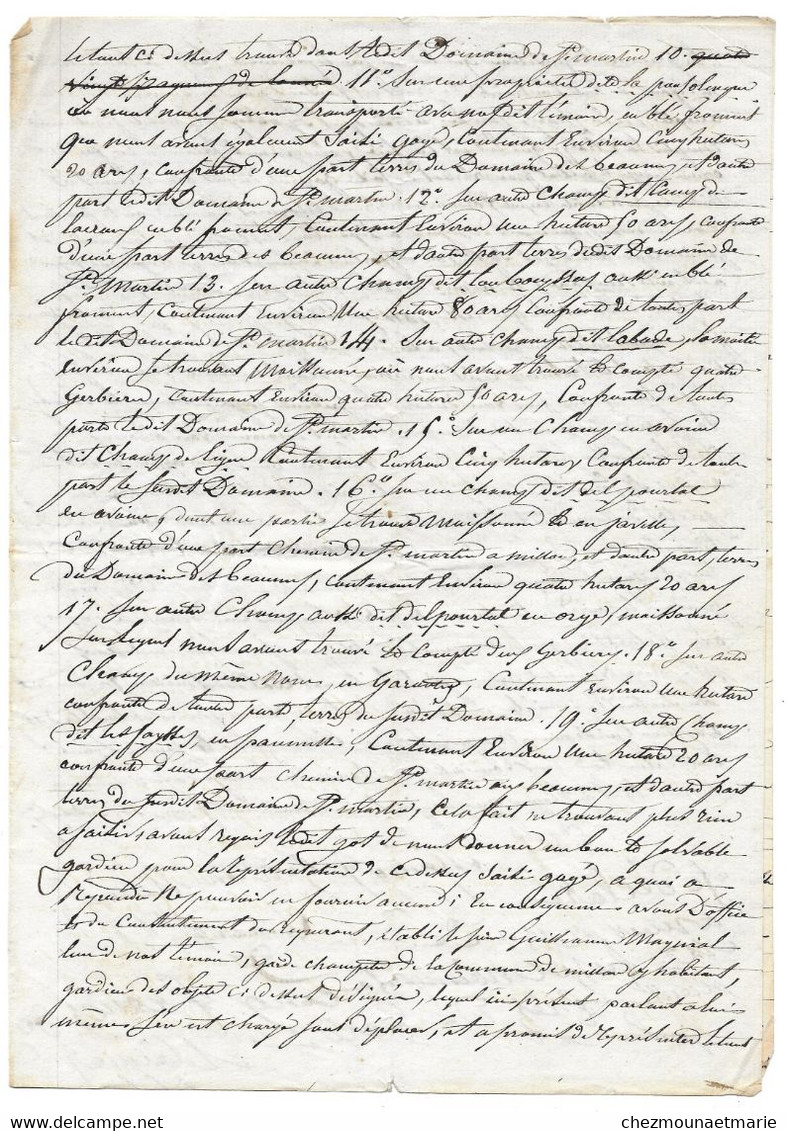 le tout ci dessus trouvé dans ledit Domaine de St martin 10. quatre
vingt 11° Sur une propriété dite la
où nous nous sommes transporté avec nosdit témoins, en blé froment
que nous avons également Saisi gagé, Contenant Environ Cinq hectares
20 ares, Confronte d'une part terres du Domaine des beaumes, et d'autre
part ledit Domaine de St martin. 12° Sur autre Champ dit Camp de
en blé froment, Contenant Environ Une hectare 50 ares, Confronte
d'une part terres des beaumes, et d'autre part terres dudit Domaine de
St Martin 13. Sur autre Champ dit aussi en blé
froment, Contenant Environ Une hectare 80 ares Confronte de toutes part
ledit Domaine de St martin 14. Sur autre Champ dit labade, la moitié
environ se trouvant Moissonné, où nous avons trouvé le Compte quatre
Gerbières, Contenant Environ quatre hectares 50 ares, Confronte de toutes
parts ledit Domaine de St martin. 15° Sur un Champ en avoine
dit Champ de Contenant Environ Cinq hectares Confronte de toute
part le Susdit Domaine. 16° Sur un champ dit del pourtal
en avoine, dont une partie se trouve Moissonné & en javelles,
Confronte d'une part Chemin de St martin a millau, et d'autre part, terres
du Domaine des beaumes, Contenant Environ quatre hectares 20 ares
17. Sur autre Champ aussi dit del pourtal en orge, moissonné
Sur lequel nous avons trouvé le Compte deux Gerbières. 18° Sur autre
Champ du même Nom, en Contenant Environ Une hectare
confronte de toutes parts, terres du Susdit Domaine. 19° Sur autre Champ
dit les faysses, en Contenant Environ Une hectare 20 ares
confronte d'une part chemin de St martin aux beaumes, et d'autre part
terres du Susdit Domaine de St martin, Cela fait ne trouvant plus rien
a Saisir, avons requis ledit got de nous donner un bon & solvable
gardien pour la représentation de ce dessus Saisi gagé, a quoi a
Repondu Ne pouvoir en fournir aucun; En conséquence avons D'office
& du Consentement du requérant, établi le sieur Guillaume
l'un de nos témoins, garde champêtre de la Commune de millau y habitant,
gardien des objets ci dessus désignés, lequel ici présent parlant a lui
même s'en est chargé sans déplacer, et a promis de représenter le tout
chezmounaetmarie